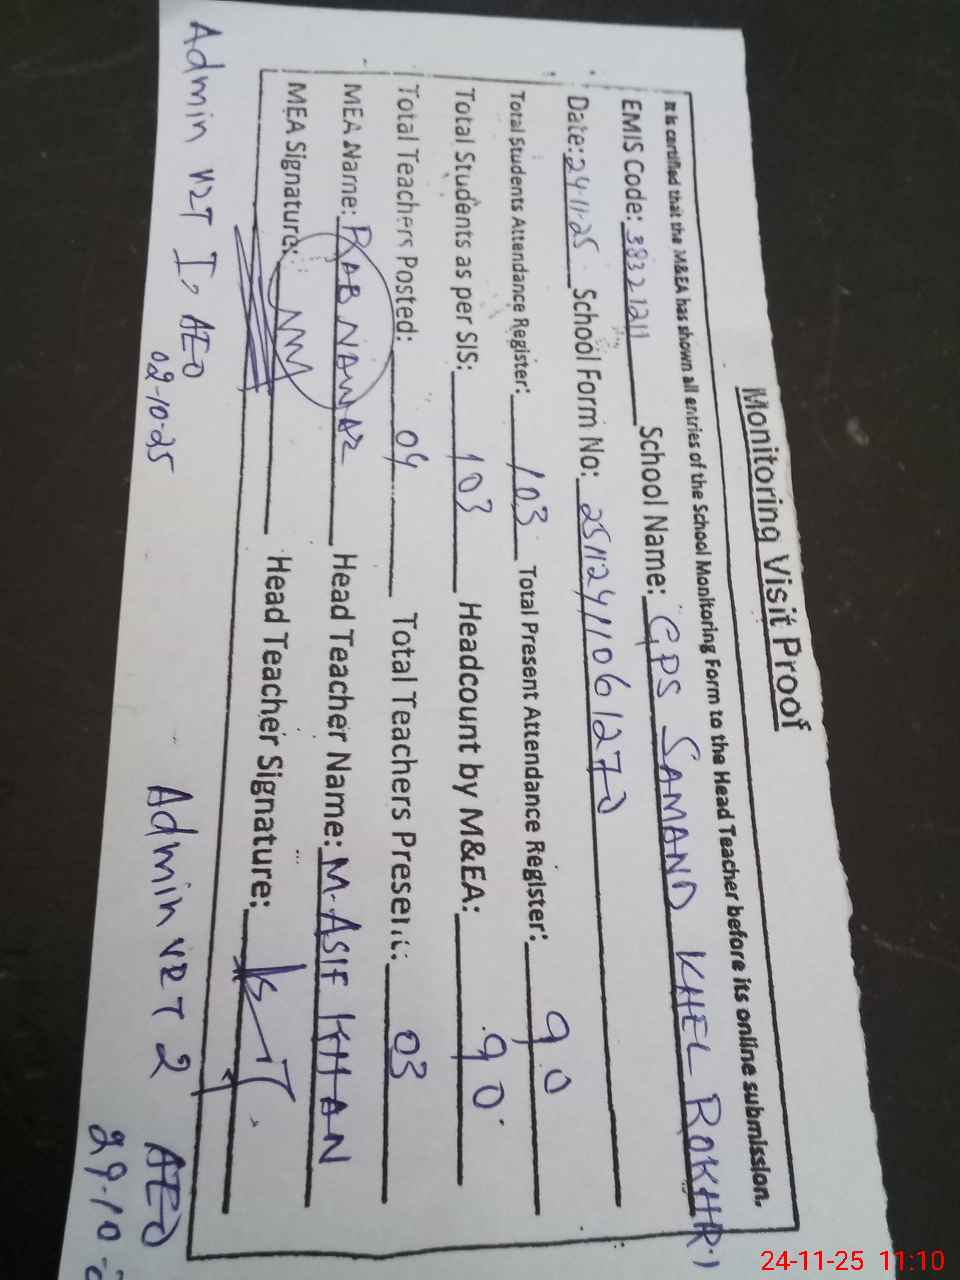 Monitoring Visit Proof
It is certified that the M&EA has shown all entries of the School Monitoring Form to the Head Teacher before its online submission.
EMIS Code: 38321211 School Name: GPS SAMAND KHEL ROKHRI
Date: 24-11-25 School Form No: 25112411061270
Total Students Attendance Register: 103 Total Present Attendance Register: 90
Total Students as per SIS: 103 Headcount by M&EA: 90
Total Teachers Posted: 04 Total Teachers Present: 03
MEA Name: RAB NAWAZ Head Teacher Name: M. ASIF KHAN
MEA Signature: Head Teacher Signature:
Admin VRT I, AEO
02-10-25
Admin VRT 2 AEO
29-10-2
24-11-25 11:10